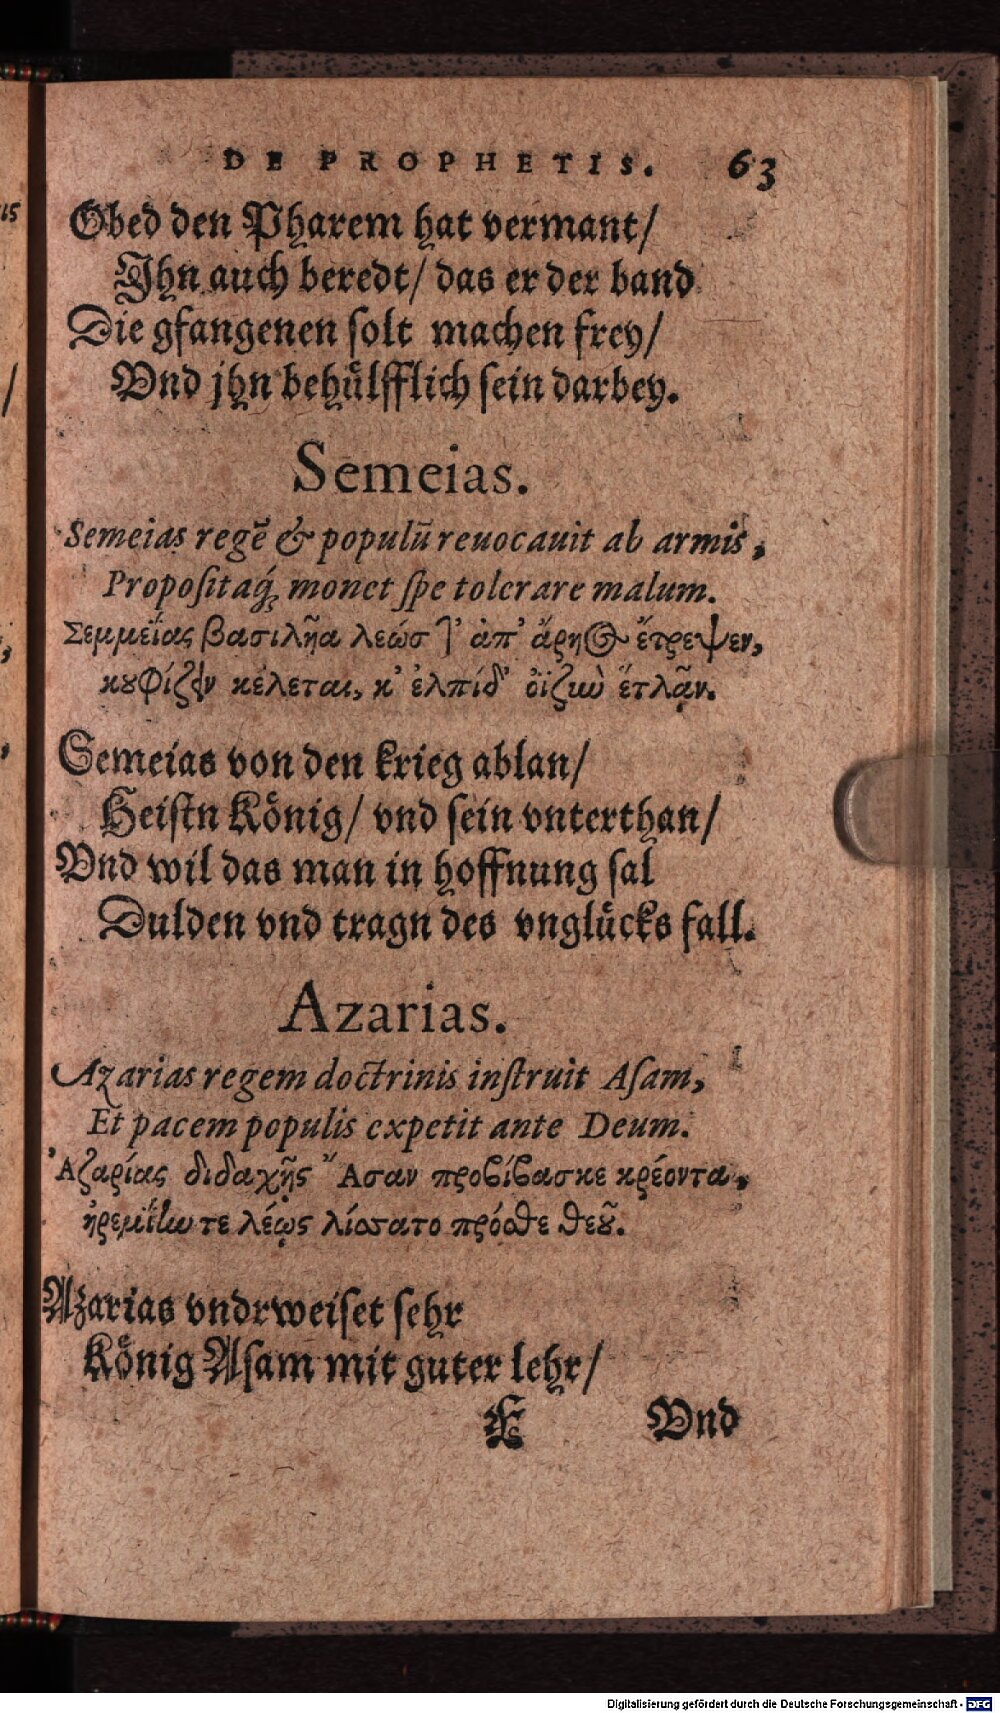 DE PROPHETIS. 63
Obed den Pharem hat vermant/
Jhn auch beredt/ das er der band
Die gfangenen solt machen frey/
Vnd jhn behülfflich sein darbey.
Semeias.
Semeias regē & populū reuocauit ab armis,
Propositaq́; monet spe tolerare malum.
Σεμμεΐας βασιλῆα λεώσ τ' ἀπ' ἄρηος ἔτρεψεν,
κουφίζειν κέλεται, κ' ἐλπίδ' ὀϊζυὼ ἔτλᾳν.
Semeias von den krieg ablan/
Heistn König/ vnd sein vnterthan/
Vnd wil das man in hoffnung sal
Dulden vnd tragn des vnglücks fall.
Azarias.
Azarias regem doctrinis instruit Asam,
Et pacem populis expetit ante Deum.
Ἀζαρίας διδαχῇς Ἄσαν προβίβασκε κρέοντα,
ἠρεμΐlω τε λέῳς λίσσατο πρόσθε θεοῦ.
Azarias vndrweiset sehr
König Asam mit guter lehr/
E Vnd
Digitalisierung gefördert durch die Deutsche Forschungsgemeinschaft - DFG